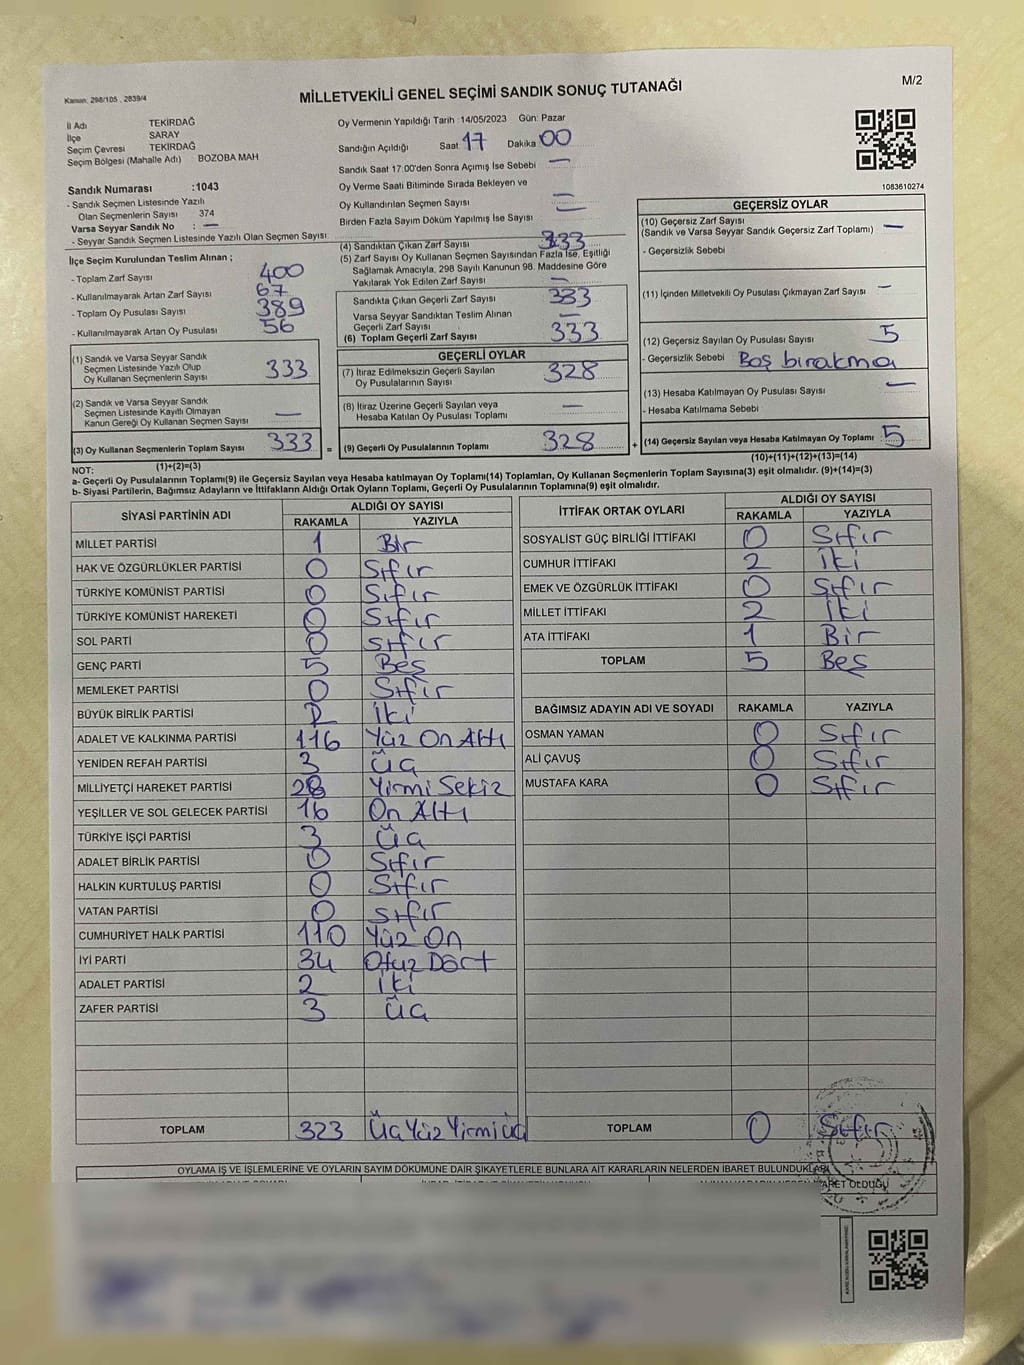 Kanun: 298/105 , 2839/4
M/2
MİLLETVEKİLİ GENEL SEÇİMİ SANDIK SONUÇ TUTANAĞI
İl Adı TEKİRDAĞ
İlçe SARAY
Seçim Çevresi TEKİRDAĞ
Seçim Bölgesi (Mahalle Adı) BOZOBA MAH
Sandık Numarası :1043
- Sandık Seçmen Listesinde Yazılı
Olan Seçmenlerin Sayısı 374
Varsa Seyyar Sandık No : —
- Seyyar Sandık Seçmen Listesinde Yazılı Olan Seçmen Sayısı:
İlçe Seçim Kurulundan Teslim Alınan ;
- Toplam Zarf Sayısı 400
- Kullanılmayarak Artan Zarf Sayısı 67
- Toplam Oy Pusulası Sayısı 389
- Kullanılmayarak Artan Oy Pusulası 56
(1) Sandık ve Varsa Seyyar Sandık
Seçmen Listesinde Yazılı Olup
Oy Kullanan Seçmenlerin Sayısı 333
(2) Sandık ve Varsa Seyyar Sandık
Seçmen Listesinde Kayıtlı Olmayan
Kanun Gereği Oy Kullanan Seçmen Sayısı —
(3) Oy Kullanan Seçmenlerin Toplam Sayısı 333 =
(1)+(2)=(3)
Oy Vermenin Yapıldığı Tarih :14/05/2023 Gün: Pazar
Sandığın Açıldığı Saat 17 Dakika 00
Sandık Saat 17:00'den Sonra Açımış İse Sebebi —
Oy Verme Saati Bitiminde Sırada Bekleyen ve
Oy Kullandırılan Seçmen Sayısı —
Birden Fazla Sayım Döküm Yapılmış İse Sayısı —
(4) Sandıktan Çıkan Zarf Sayısı 333
(5) Zarf Sayısı Oy Kullanan Seçmen Sayısından Fazla İse, Eşitliği
Sağlamak Amacıyla, 298 Sayılı Kanunun 98. Maddesine Göre
Yakılarak Yok Edilen Zarf Sayısı —
Sandıkta Çıkan Geçerli Zarf Sayısı 333
Varsa Seyyar Sandıktan Teslim Alınan
Geçerli Zarf Sayısı —
(6) Toplam Geçerli Zarf Sayısı 333
GEÇERLİ OYLAR
(7) İtiraz Edilmeksizin Geçerli Sayılan
Oy Pusulalarının Sayısı 328
(8) İtiraz Üzerine Geçerli Sayılan veya
Hesaba Katılan Oy Pusulası Toplamı —
(9) Geçerli Oy Pusulalarının Toplamı 328 +
1083610274
GEÇERSİZ OYLAR
(10) Geçersiz Zarf Sayısı
(Sandık ve Varsa Seyyar Sandık Geçersiz Zarf Toplamı) —
- Geçersizlik Sebebi
(11) İçinden Milletvekili Oy Pusulası Çıkmayan Zarf Sayısı —
(12) Geçersiz Sayılan Oy Pusulası Sayısı 5
- Geçersizlik Sebebi Boş bırakma
(13) Hesaba Katılmayan Oy Pusulası Sayısı —
- Hesaba Katılmama Sebebi
(14) Geçersiz Sayılan veya Hesaba Katılmayan Oy Toplamı 5
(10)+(11)+(12)+(13)=(14)
NOT:
a- Geçerli Oy Pusulalarının Toplamı(9) ile Geçersiz Sayılan veya Hesaba katılmayan Oy Toplamı(14) Toplamları, Oy Kullanan Seçmenlerin Toplam Sayısına(3) eşit olmalıdır. (9)+(14)=(3)
b- Siyasi Partilerin, Bağımsız Adayların ve İttifakların Aldığı Ortak Oyların Toplamı, Geçerli Oy Pusulalarının Toplamına(9) eşit olmalıdır.
SİYASİ PARTİNİN ADI ALDIĞI OY SAYISI
RAKAMLA YAZIYLA
MİLLET PARTİSİ 1 Bir
HAK VE ÖZGÜRLÜKLER PARTİSİ 0 Sıfır
TÜRKİYE KOMÜNİST PARTİSİ 0 Sıfır
TÜRKİYE KOMÜNİST HAREKETİ 0 Sıfır
SOL PARTİ 0 sıfır
GENÇ PARTİ 5 Beş
MEMLEKET PARTİSİ 0 Sıfır
BÜYÜK BİRLİK PARTİSİ 2 İki
ADALET VE KALKINMA PARTİSİ 116 Yüz On Altı
YENİDEN REFAH PARTİSİ 3 Üç
MİLLİYETÇİ HAREKET PARTİSİ 28 Yirmi Sekiz
YEŞİLLER VE SOL GELECEK PARTİSİ 16 On Altı
TÜRKİYE İŞÇİ PARTİSİ 3 Üç
ADALET BİRLİK PARTİSİ 0 Sıfır
HALKIN KURTULUŞ PARTİSİ 0 Sıfır
VATAN PARTİSİ 0 sıfır
CUMHURİYET HALK PARTİSİ 110 Yüz On
İYİ PARTİ 34 Otuz Dört
ADALET PARTİSİ 2 İki
ZAFER PARTİSİ 3 Üç
TOPLAM 323 Üç Yüz Yirmi üç
İTTİFAK ORTAK OYLARI ALDIĞI OY SAYISI
RAKAMLA YAZIYLA
SOSYALİST GÜÇ BİRLİĞİ İTTİFAKI 0 Sıfır
CUMHUR İTTİFAKI 2 İki
EMEK VE ÖZGÜRLÜK İTTİFAKI 0 Sıfır
MİLLET İTTİFAKI 2 İki
ATA İTTİFAKI 1 Bir
TOPLAM 5 Beş
BAĞIMSIZ ADAYIN ADI VE SOYADI RAKAMLA YAZIYLA
OSMAN YAMAN 0 Sıfır
ALİ ÇAVUŞ 0 Sıfır
MUSTAFA KARA 0 Sıfır
TOPLAM 0 Sıfır
OYLAMA İŞ VE İŞLEMLERİNE VE OYLARIN SAYIM DÖKÜMÜNE DAİR ŞİKAYETLERLE BUNLARA AİT KARARLARIN NELERDEN İBARET BULUNDUKLARI